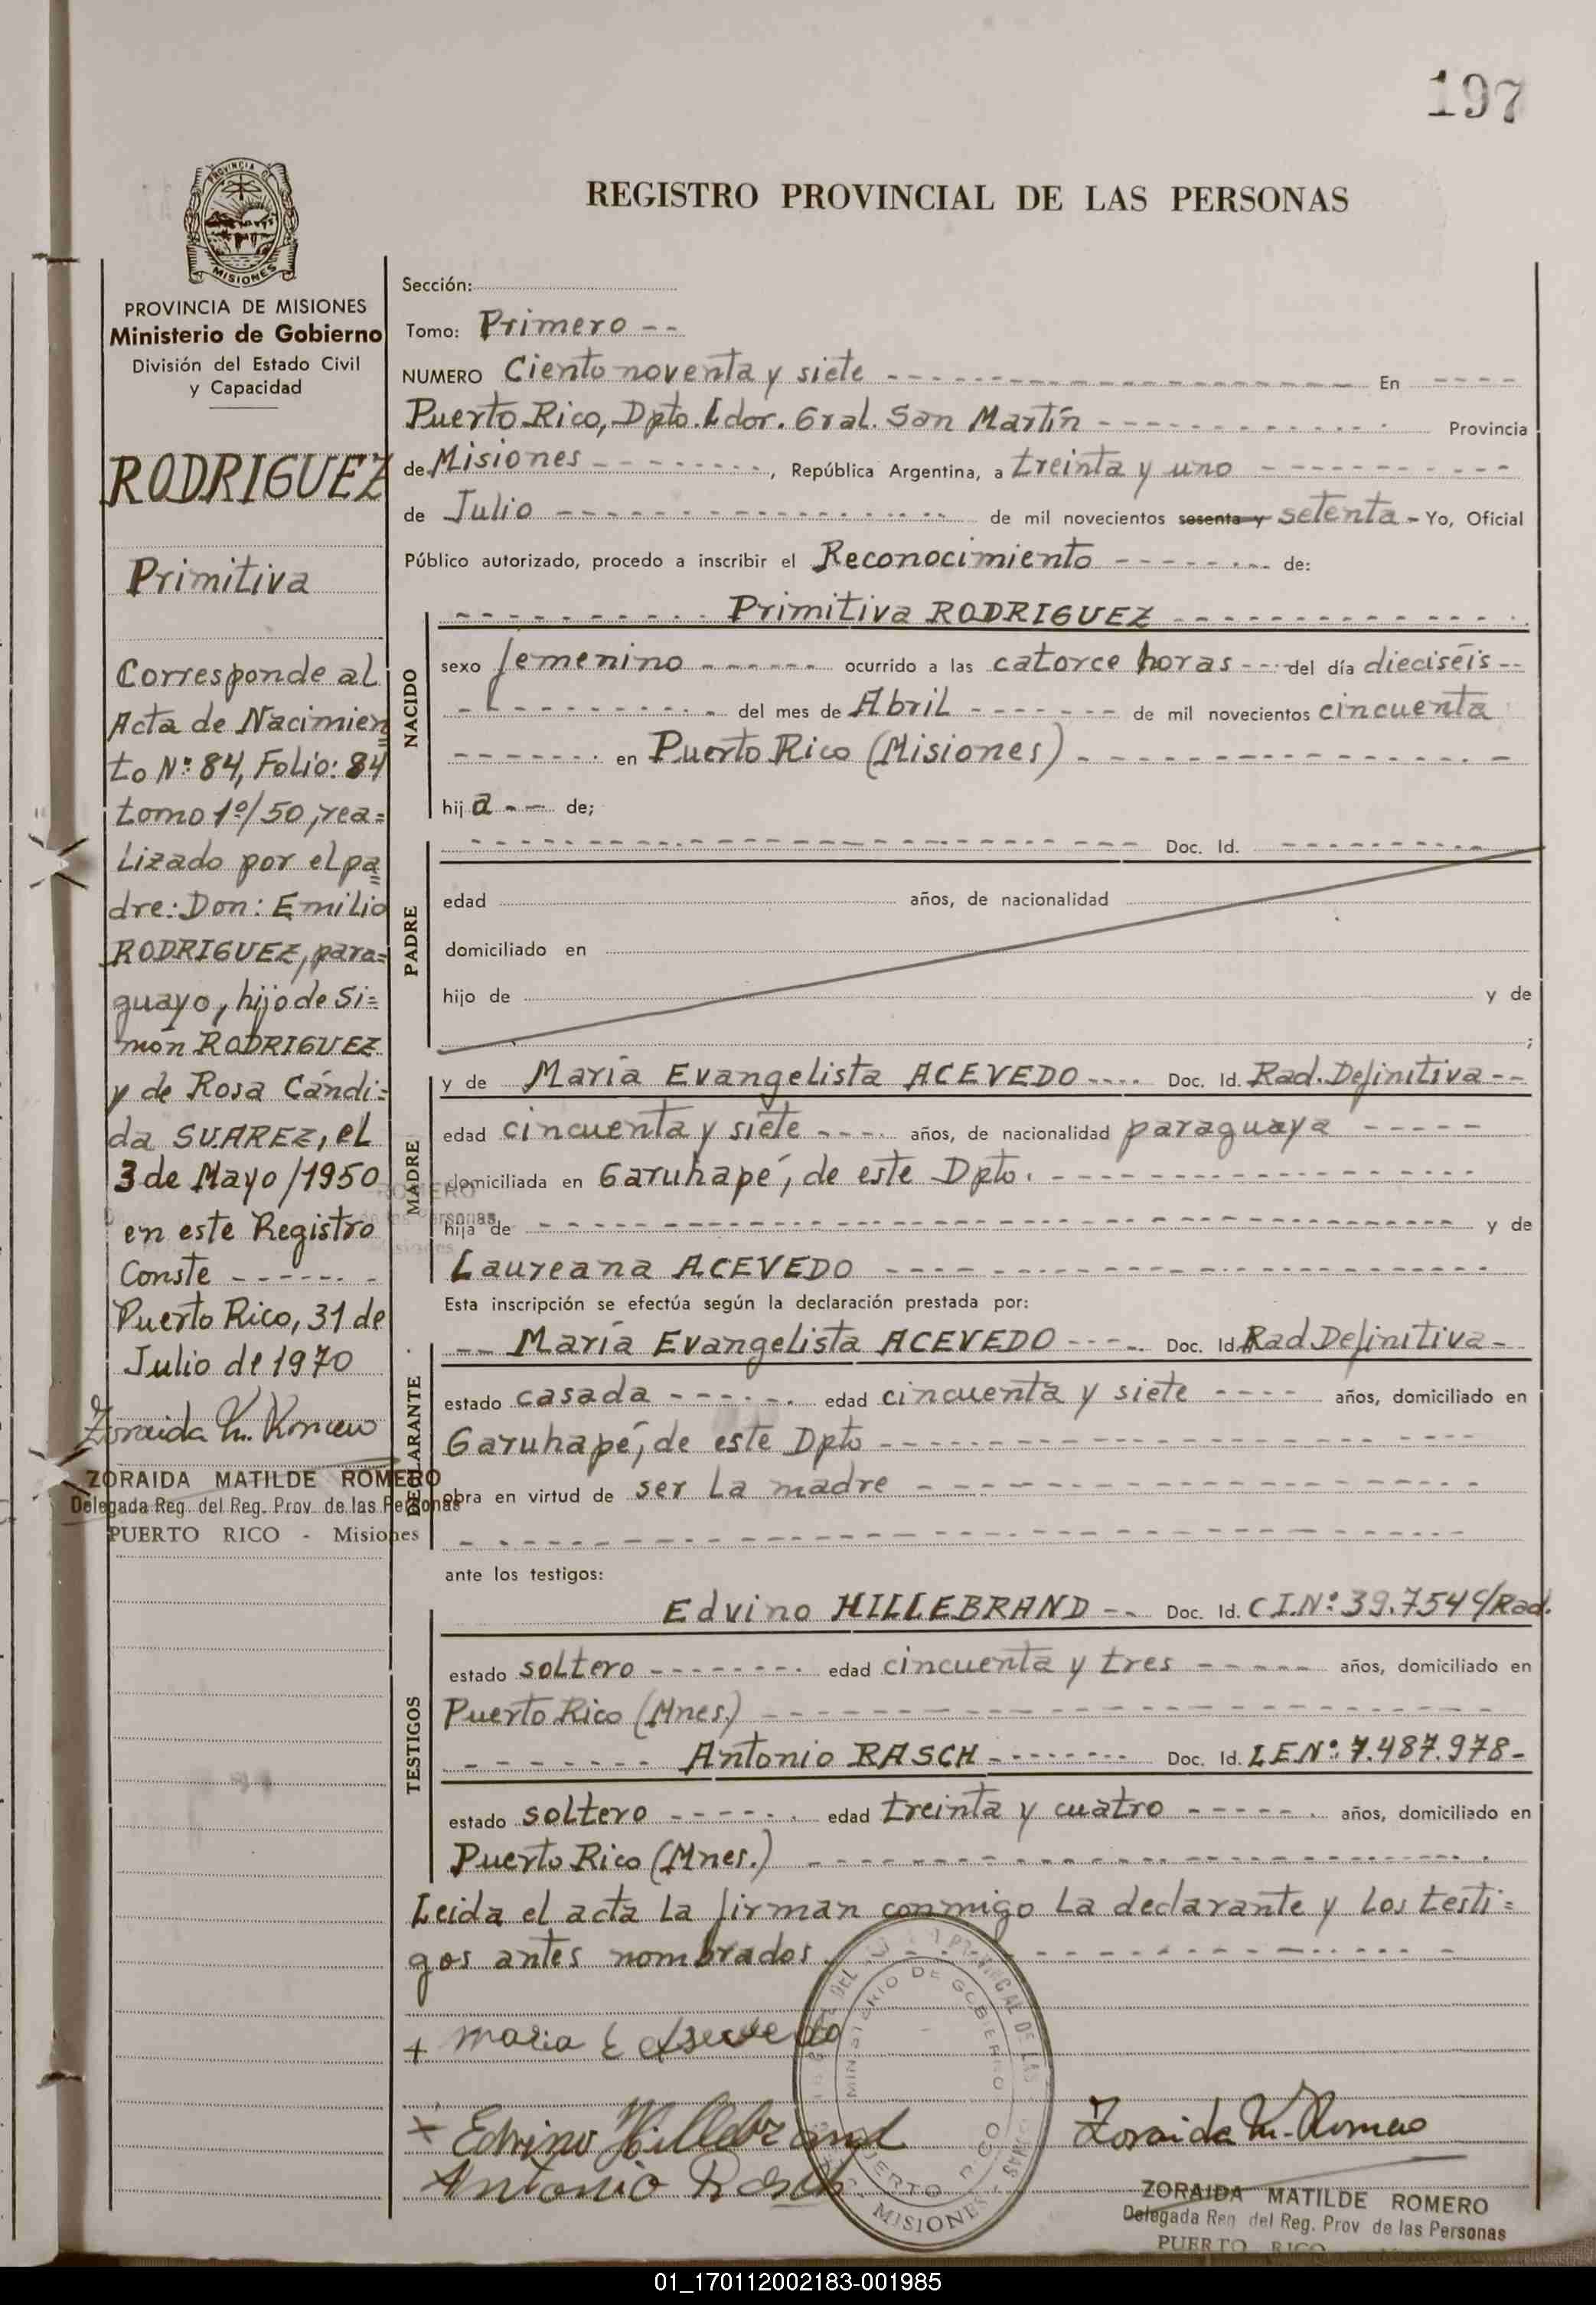 197
REGISTRO PROVINCIAL DE LAS PERSONAS
PROVINCIA DE
MISIONES
PROVINCIA DE MISIONES
Ministerio de Gobierno
División del Estado Civil
y Capacidad
RODRIGUEZ
Primitiva
Corresponde al
Acta de Nacimien=
to Nº: 84, Folio: 84
tomo 1º/50, rea=
lizado por el pa=
dre: Don: Emilio
RODRIGUEZ, para=
guayo, hijo de Si=
món RODRIGUEZ
y de Rosa Cándi=
da SUAREZ, el
3 de Mayo/1950
en este Registro
Conste
Puerto Rico, 31 de
Julio de 1970
Zoraida M. Romero
ZORAIDA MATILDE ROMERO
Delegada Reg. del Reg. Prov. de las Personas
PUERTO RICO - Misiones
Sección:
Tomo: Primero --
NUMERO Ciento noventa y siete ---- En ----
Puerto Rico, Dpto. Ldor. Gral. San Martín ---- Provincia
de Misiones ----, República Argentina, a treinta y uno ----
de Julio ---- de mil novecientos sesenta y setenta - Yo, Oficial
Público autorizado, procedo a inscribir el Reconocimiento ---- de:
NACIDO
---- Primitiva RODRIGUEZ ----
sexo femenino ---- ocurrido a las catorce horas --- del día dieciséis --
---- del mes de Abril ---- de mil novecientos cincuenta
---- en Puerto Rico (Misiones) ----
hija -- de;
PADRE
---- Doc. Id. ----
edad años, de nacionalidad
domiciliado en
hijo de y de
;
MADRE
y de María Evangelista ACEVEDO ---- Doc. Id. Rad. Definitiva --
edad cincuenta y siete ---- años, de nacionalidad paraguaya ----
domiciliada en Garuhapé, de este Dpto. ----
hija de ---- y de
Laureana ACEVEDO ----
Esta inscripción se efectúa según la declaración prestada por:
DECLARANTE
-- María Evangelista ACEVEDO ---- Doc. Id. Rad Definitiva -
estado casada ---- edad cincuenta y siete ---- años, domiciliado en
Garuhapé, de este Dpto ----
obra en virtud de ser la madre ----
----
ante los testigos:
TESTIGOS
Edvino HILLEBRAND -- Doc. Id. C I. Nº: 39.754 c/Rad.
estado soltero ---- edad cincuenta y tres ---- años, domiciliado en
Puerto Rico (Mnes.) ----
---- Antonio RASCH ---- Doc. Id. LE Nº: 7.487.978-
estado soltero ---- edad treinta y cuatro ---- años, domiciliado en
Puerto Rico (Mnes.) ----
Leida el acta la firman conmigo la declarante y los testi=
gos antes nombrados. ----
MINISTERIO DE GOBIERNO
PUERTO RICO
MISIONES
+ Maria E Asevedo
x Edvino Hillebrand
Zoraida M. Romero
Antonio Rasch
ZORAIDA MATILDE ROMERO
Delegada Reg del Reg. Prov de las Personas
PUERTO RICO
01_170112002183-001985